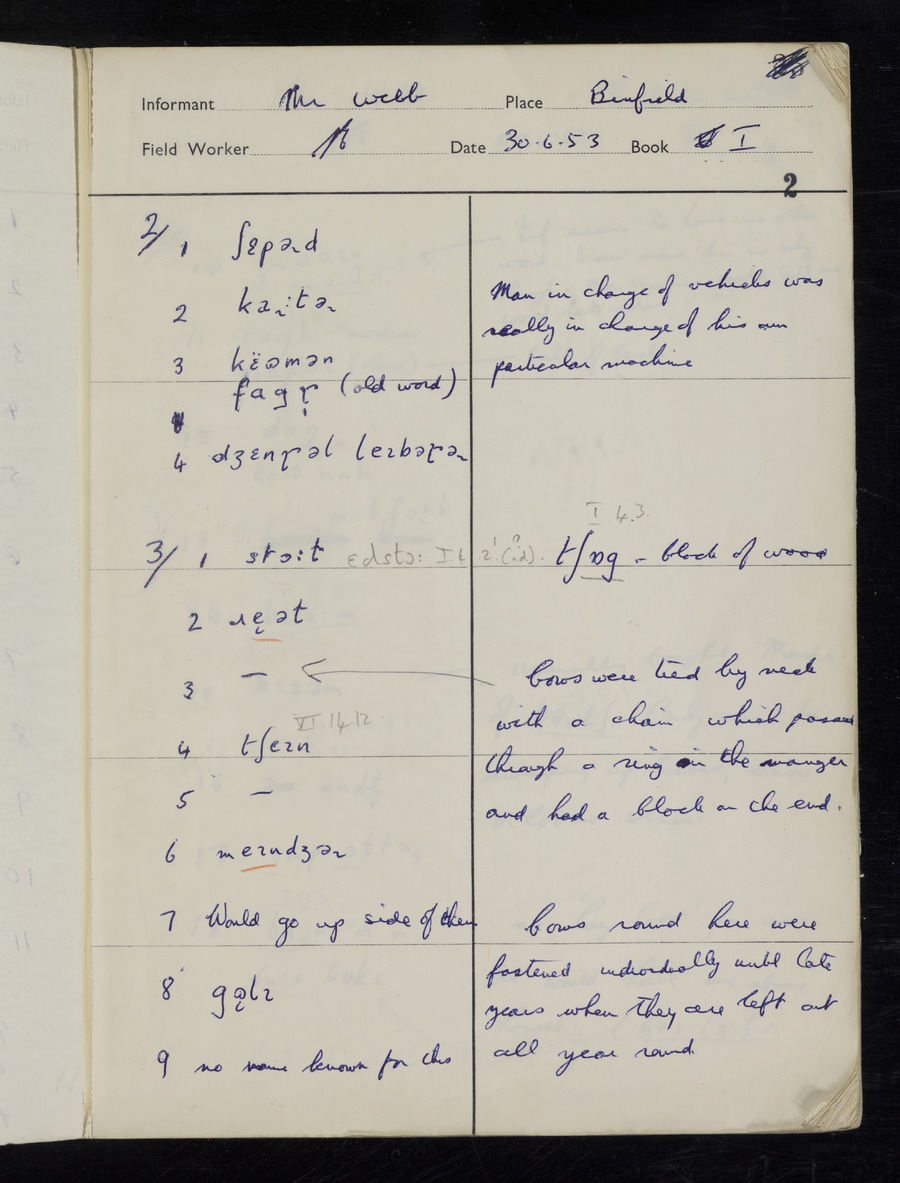 Informant Mr Webb Place Binfield
Field Worker Date 30.6.53 Book I
2
2/ 1 ʃɛpəɹd
2 kaɹːtəɹ
Man in charge of vehicles was
really in charge of his own
particular machine
3 këəmən
fagɽ (old word)
4 dʒɛnɽəl leɪbəɽəɹ
I 4.3.
3/ 1 stɔːt ɛdstɔː tʃɒg - block of wood
2 ɹẹət
3 – bows were tied by neck
with a chain which passed
VI.14.12
4 tʃeɪn
through a ring in the manger
5 – and had a block on the end.
6 meɪndʒəɹ
7 Would go up side of them bows round here were
fastened individually until late
8 gəlɪ
years when they are left out
all year round
9 no name known for this